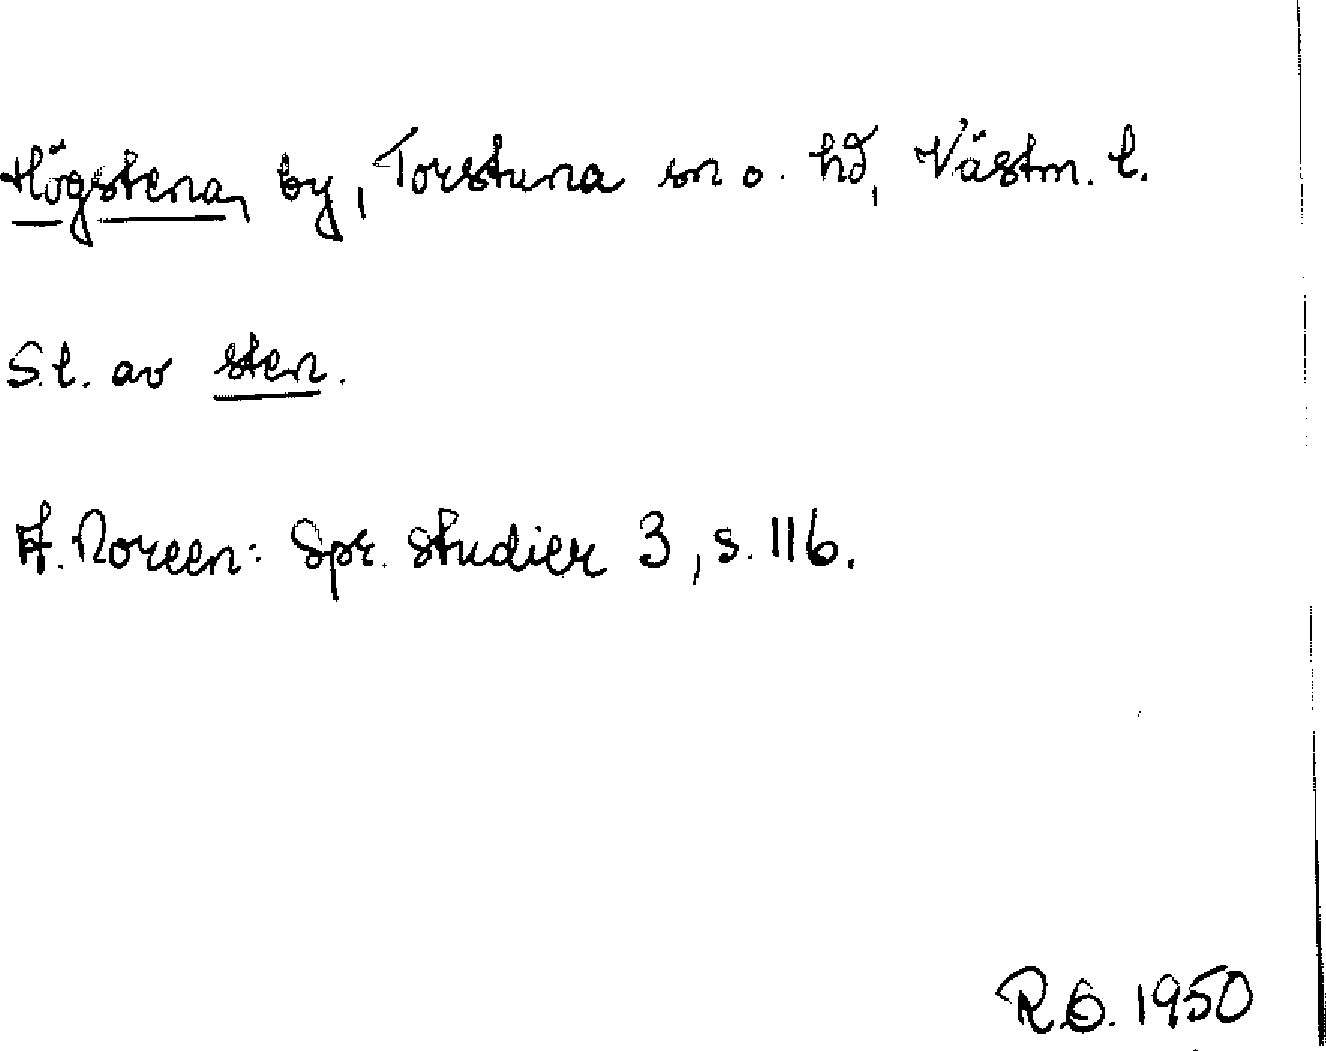 Högstena, by, Torstuna sn o. hd, Västm. l.
S.l. av sten.
A. Noreen: Spr. studier 3, s. 116.
R.G. 1950